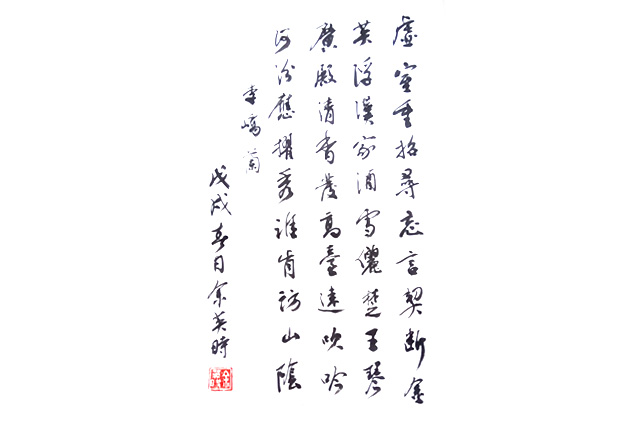 虛室重招尋忘言契斷金
英浮漢家酒雪儷楚王琴
廣殿清香發高臺遠吹吟
河汾應擢秀誰肯訪山陰
李嶠蘭
戊戌春日余英時